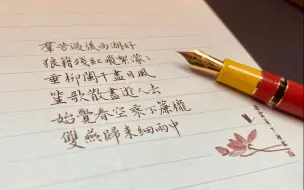 羣芳過後西湖好
狼籍殘紅飛絮濛〻
垂柳闌干盡日風
笙歌散盡遊人去
始覺春空垂下簾櫳
雙燕歸來細雨中